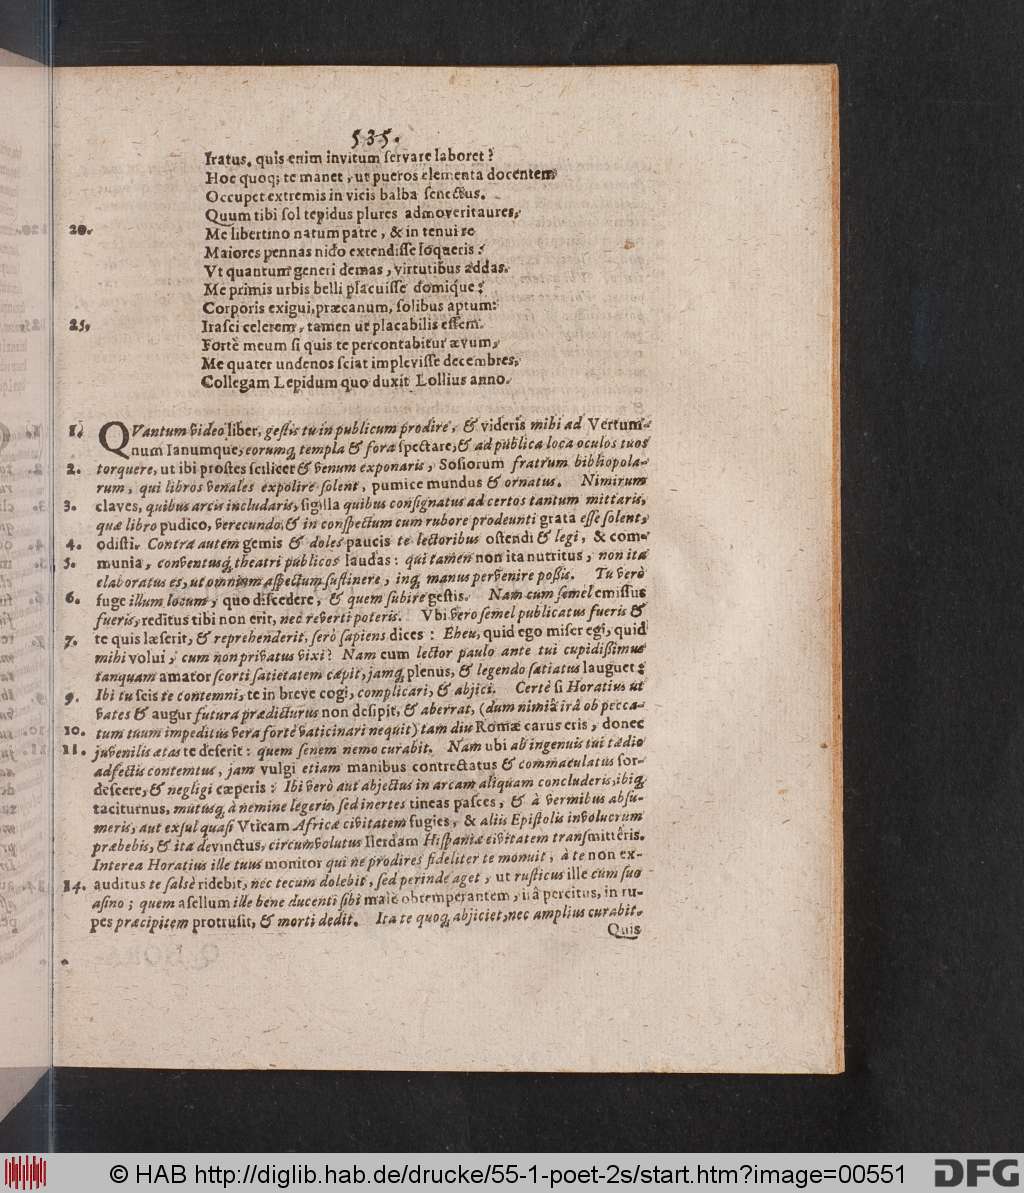 535.
Iratus. quis enim invitum servare laboret?
Hoc quoq; te manet, ut pueros elementa docentem
Occupet extremis in vicis balba senectus.
Quum tibi sol tepidus plures admoverit aures,
20. Me libertino natum patre, & in tenui re
Maiores pennas nido extendisse loqueris:
Vt quantum generi demas, virtutibus addas.
Me primis urbis belli placuisse domique;
Corporis exigui, præcanum, solibus aptum:
25. Irasci celerem, tamen ut placabilis essem.
Fortè meum si quis te percontabitur ævum,
Me quater undenos sciat implevisse decembres,
Collegam Lepidum quo duxit Lollius anno.
1. QVantum video liber, gestis tu in publicum prodire, & videris mihi ad Vertum-
num Ianumque, eorumq; templa & fora spectare, & ad publica loca oculos tuos
2. torquere, ut ibi prostes scilicet & venum exponaris, Sosiorum fratrum bibliopola-
rum, qui libros venales expolire solent, pumice mundus & ornatus. Nimirum
3. claves, quibus arcis includaris, sigilla quibus consignatus ad certos tantum mittaris,
quæ libro pudico, verecundo, & in conspectum cum rubore prodeunti grata esse solent,
4. odisti. Contra autem gemis & doles paucis te lectoribus ostendi & legi, & com-
5. munia, conventusq; theatri publicos laudas: qui tamen non ita nutritus, non ita
elaboratus es, ut omnium aspectum sustinere, inq; manus pervenire possis. Tu verò
6. fuge illum locum, quo discedere, & quem subire gestis. Nam cum semel emissus
fueris, reditus tibi non erit, nec reverti poteris. Vbi vero semel publicatus fueris &
7. te quis læserit, & reprehenderit, serò sapiens dices: Eheu, quid ego miser egi, quid
mihi volui, cum non privatus vixi? Nam cum lector paulo ante tui cupidissimus
tanquam amator scorti satietatem cœpit, jamq; plenus, & legendo satiatus languet;
9. Ibi tu scis te contemni, te in breve cogi, complicari, & abjici. Certè si Horatius ut
vates & augur futura prædicturus non desipit, & aberrat, (dum nimiâ irâ ob pecca-
10. tum tuum impeditus vera fortè vaticinari nequit) tam diu Romæ carus eris, donec
11. juvenilis ætas te deserit: quem senem nemo curabit. Nam ubi ab ingenuis tui tædio
adfectis contemtus, jam vulgi etiam manibus contrectatus & commaculatus sor-
descere, & negligi cœperis: Ibi verò aut abjectus in arcam aliquam concluderis, ibiq;
taciturnus, mutusq; à nemine legeris, sed inertes tineas pasces, & à vermibus absu-
meris, aut exsul quasi Vticam Africæ civitatem fugies, & aliis Epistolis involucrum
præbebis, & ita devinctus, circumvolutus Ilerdam Hispaniæ civitatem transmittêris.
Interea Horatius ille tuus monitor qui ne prodires fideliter te monuit, à te non ex-
14. auditus te salsè ridebit, nec tecum dolebit, sed perinde aget, ut rusticus ille cum suo
asino; quem asellum ille bene ducenti sibi male obtemperantem, irâ percitus, in ru-
pes præcipitem protrusit, & morti dedit. Ita te quoq; abjiciet, nec amplius curabit.
Quis
© HAB http://diglib.hab.de/drucke/55-1-poet-2s/start.htm?image=00551
DFG